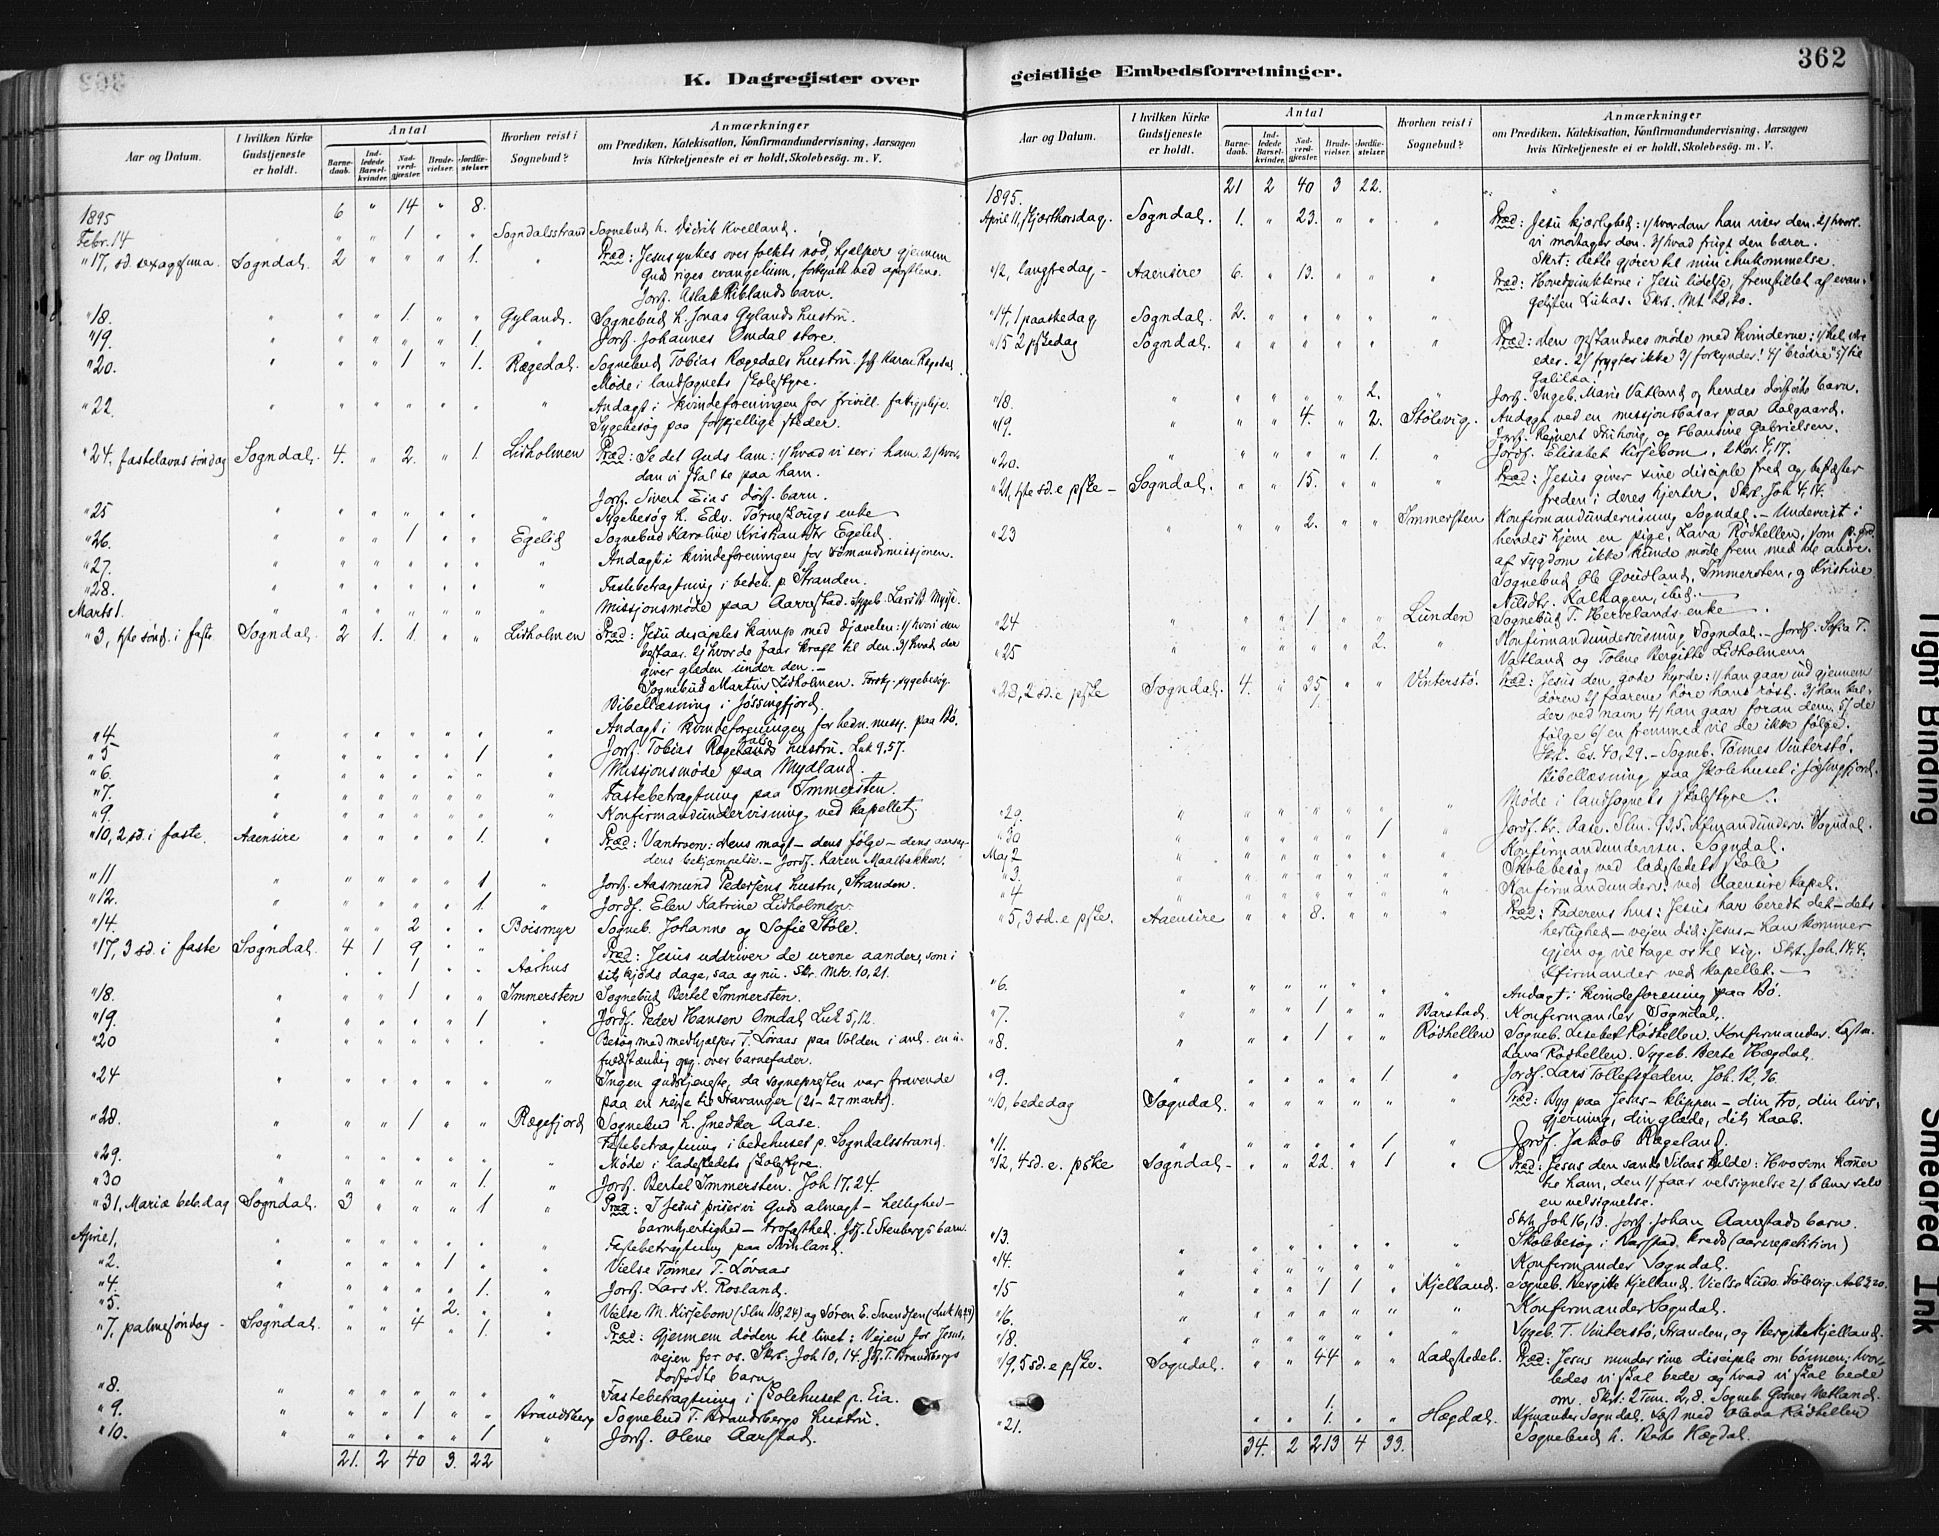 362
K. Dagregister over
geistlige Embedsforretninger.
Aar og Datum.
I hvilken Kirke Gudstjeneste er holdt.
Antal
Barne-daab.
Ind-ledede Barsel-kvinder.
Nad-verd-gjester.
Brude-vielser.
Jordfæ-stelser.
Hvorhen reist i Sognebud?
Anmærkninger
om Prædiken, Katekisation, Konfirmandundervisning, Aarsagen
hvis Kirketjeneste ei er holdt, Skolebesøg. m. V.
1895 6 " 14 " 8.
Febr. 14 " " 1 " " Sogndalsstrand Sognebud h. Didrik Kvelland.
"17, sd. sexagesima. Sogndal. 2 " " " 1. " Præd: Jesus ynkes over folkets nød, hjælper gjennem
Guds riges evangelium, forkyndt ved apostlene.
Jordf. Aslak Riblands barn.
"18. " " " 1. " " Gyland. Sognebud h. Jonas Gylands hustru.
"19. " " " " " 1. " Jordf. Johannes Omdal store.
"20. " " " 1 " 1. Rægedal. Sognebud Tobias Rægedals hustru. Jdf. Karen Rægedal.
Møde i landsognets skolestyre.
"22. " " " " " " " Andagt i kvindeforeningen for frivill. fattigpleje.
Sygebesøg paa forskjellige steder.
"24. fastelavns søndag Sogndal. 4. " 2. " 1. Lidholmen Præd: Se det Guds lam: 1/ hvad vi ser i ham. 2/ hvor-
dan vi skal se paa ham.
Jorf. Sivert Eias dørf. barn.
"25 " " " " " " " Sygebesøg h. Edv. Tørneskougs enke
"26. " " " 1 " " Egelid Sognebud Karoline Kristiansdtr Egelid.
"27. " " " " " " " Andagt i kvindeforeningen for sømandsmissjonen.
"28. " " " " " " " Fastebetragtning i bedeh. p. Stranden.
Marts 1. " " " " " " " Missjonsmøde paa Aarrestad. Sygeb. Lars B. Mysse.
"3, 1ste sønd. i faste Sogndal. 2 1. 1. " " Lidholmen Præd: Jesu disciples kamp med djævelen: 1/ hvori den
bestaar. 2/ hvor de faar kraft til den. 3/ hvad der
giver glæden under den. —
Sognebud Martin Lidholmen. Forskj. sygebesøg.
Bibellæsning i Jøssingfjord.
"4. " " " " " " " Andagt i kvindeforeningen for hedn. miss. paa Bø.
"5 " " " " " 1 " Jorf. Tobias Rægedals hustru. Luk 9,57.
"6. " " " " " " " Missjonsmøde paa Mydland.
"7. " " " " " " " Fastebetragtning paa Immersten.
"9. " " " " " " " Konfirmandundervisning ved kapellet.
"10, 2 sd. i faste Aaensire " " " " 1. " Præd: Vantroen: dens magt – dens følge – dens aarsag –
dens bekjæmpelse. – Jordf. Karen Maalbakken.
"11. " " " " " 1 " Jordf. Aasmund Pedersens hustru, Stranden.
"12. " " " " " 1. " Jordf. Elen Katrine Lidholmen.
"14. " " " 2 " " Boismyr Sogneb. Johanne og Sofie Støle.
"17, 3 sd. i faste Sogndal. 4 1 9 " " " Præd: Jesus uddriver de urene aander, som i
" " 1 " " Aarhus sit kjøds dage, saa og nu. Skr. Mk. 10,21.
"18. " " " 1 " " Immersten Sognebud Bertel Immersten.
"19. " " " " " 1 " Jordf. Peder Hansen Omdal Luk 5,12.
"20 " " " " " " " Besøg med medhjælper T. Løvaas paa Volden i anl. en u-
fuldstændig opg. over barnefader.
"24 " " " " " " " Ingen gudstjeneste, da sognepresten var fraværende
paa en rejse til Stavanger (21 – 27 marts).
"28. " " " 1 " " Rægefjord Sognebud h. snedker Aase.
Fastebetragtning i bedehuset p. Sogndalsstrand.
"29. " " " " " " " Møde i ladestedets skolestyre.
"30 " " " " " 1. " Jordf. Bertel Immersten. Joh 17,24.
"31, Mariæ beb. dag Sogndal. 3 " " " 1 " Præd: I Jesus priser vi Guds almagt – hellighed –
barmhjertighed – trofasthed. Jdf. E. Stenbergs barn.
April 1. " " " " " " " Fastebetragtning paa
"2. " " " " 1 " " Vielse Tønnes T. Løvaas
"4. " " " " " 1. " Jordf. Lars K. Rosland.
"5. " " " " 2. " " Vielse M. Kirsebom (Slm 118,24) og Søren E. Svendsen
"7, palmesøndag – Sogndal. " " 4 " 1. " Præd: Gjennem døden til livet: Vejen for Jesus,
vejen for os. Skr.: Joh 10,14. Jdf. T. Brandsbergs
dødfødte barn.
"8. " " " " " " " Fastebetragtning i skolehuset p. Eia.
"9. " " " 1 " " Brandsberg Sognebud T. Brandsbergs hustru.
"10. " " " " " 1 " Jordf. Olene Aarstad.
21. 2 40 3. 22
Aar og Datum.
I hvilken Kirke Gudstjeneste er holdt.
Antal
Barne-daab.
Ind-ledede Barsel-kvinder.
Nad-verd-gjester.
Brude-vielser.
Jordfæ-stelser.
Hvorhen reist i Sognebud?
Anmærkninger
om Prædiken, Katekisation, Konfirmandundervisning, Aarsagen
hvis Kirketjeneste ei er holdt, Skolebesøg. m. V.
1895. 21 2 40 3 22.
April 11, skjærthorsdag. Sogndal. 1. " 23. " " " Præd: Jesu kjærlighed: 1/ hvordan han viser den. 2/ hvorl.
vi modtager den. 3/ hvad frugt den bærer.
Skrt: dette gjører til min ihukommelse.
"12, langfredag – Aaensire 6. " 13. " " " Præd: Hovedpunkterne i Jesu lidelse, fremstillet af evan-
gelisten Lukas. Skr. Mt 28,20.
"14, 1 paaskedag Sogndal. 2. " " " " "
"15 2 pskedag Sogndal. " " " " " " Præd: den opstandnes møde med kvinderne: 1/ hel være
eder. 2/ frygter ikke 3/ forkynder! 4/ "brødre" 5/ til
Galilæa.
"18. " " " " " 2. " Jorf. Ingeb. Marie Vatland og hendes dødfødte barn.
"19. " " " 4. " 2. Stølevig. Andagt ved en missjonsbasar paa Aalgaard.
Jorf. Reinert og Hansine Gabrielsen.
"20. " " " " " 1. " Jordf. Elisabet Kirsebom. 2 Kor. 4,17.
"21, 1ste sd. e. pske – Sogndal. " " 15. " " " Præd: Jesus giver sine disciple fred og befæster
freden i deres hjerter. Skr. Joh 4,14.
"23 " " " 2. " " Immersten Konfirmandundervisning Sogndal. – Undervist i
hendes hjem en pige, Lava Rødhellen, som p. grd.
af sygdom ikke kunde møde frem med de andre.
Sognebud Ole Immersten, og Kristine
Nilsdtr. Kalhagen, ibid.
"24 " " " 1 " " Lunden Sognebud T. Hervelands enke.
"25 " " " " " 2. " Konfirmandundervisning Sogndal. – Jordf. Sofia T.
Vatland og Tolene Bergitte Lidholmen.
"28, 2 sd. e. pske Sogndal. 4. " 25. " " Vinterstø. Præd: Jesus den gode hyrde: 1/ han gaar ind gjennem
1. døren 2/ faarene høre hans røst. 3/ han kal-
der ved navn 4/ han gaar foran dem. 5/ de
følge 6/ en fremmed vil de ikke følge.
Skr. Es. 40,29. – Sogneb. Tønnes Vinterstø.
Bibellæsning paa skolehuset i Jøssingfjord.
"29. " " " " " " " Møde i landsognets skolestyre.
"30 " " " " " 1 " Jordf. Kr. Aase. Slm. 73,5. Kfmandunderv. Sogndal.
Maj 2 " " " " " " " Konfirmandundervisn. Sogndal.
"3. " " " " " " " Skolebesøg ved ladestedets skole
"4 " " " " " " " Konfirmandunderv. ved Aaensire kapel.
"5, 3 sd. e. pske. Aaensire " " 8. " " " Præd: Faderens hus: Jesus har beredt det – dets
herlighed – vejen did: Jesus – han kommer
igjen og vil tage os til sig. Skr. Joh. 17,4.
Kfirmander ved kapellet. —
"6. " " " " " " " Andagt i kvindeforening paa Bø.
"7. " " " 1 " " Barstad. Konfirmander Sogndal.
"8. " " " 1 " " Rødhellen Sogneb. Lisebet Rødhellen. Konfirmander. Læst m.
Lava Rødhellen. Sygeb. Berte Hægdal.
"9. " " " " " 1. " Jordf. Lars Tollefsfeden. Joh. 12,26.
"10, bededag Sogndal. " " " " " " Præd: Byg paa Jesus – klippen – din tro, din livs-
gjerning, din glæde, dit haab.
"11. " " " " " 1 " Jordf. Jakob Rægeland.
"12, 4 sd. e. pske Sogndal – " " 22. " 1 " Præd: Jesus den sande Siloas kilde: Hvo som kommer
til ham, den 1/ faar velsignelse 2/ bliver selv
en velsignelse.
Skr. Joh 16,13. Jorf. Johan Aarrestads barn.
"13. " " " " " " " Skolebesøg i Barstad kreds (aarsrepetition)
"14. " " " " " " " Konfirmander Sogndal.
"15 " " " 1 1 " Kjelland. Sogneb. Bergitte Kjelland. Vielse Ludv. Stølevig.
"16. " " " " " " " Konfirmander Sogndal.
"18. " " " " " " " Sygeb. T. Vinterstø, Stranden, og Bergitte Kjelland.
"19, 5 sd. e. pske. Sogndal. " " 44 " " Ladestedet. Præd: Jesus minder sine disciple om bønnen: hvor-
ledes vi skal bede og hvad vi skal bede
1. om. Skr: 2 Tim. 2,8. Sogneb. Gosner Netland.
"21. " " " 1. " " Hægdal. Kfmander Sogndal. Læst med Rødhellen
Sognebud h. Berte Hægdal.
34. 2 213 4 33.
Tight Binding
Smeared Ink